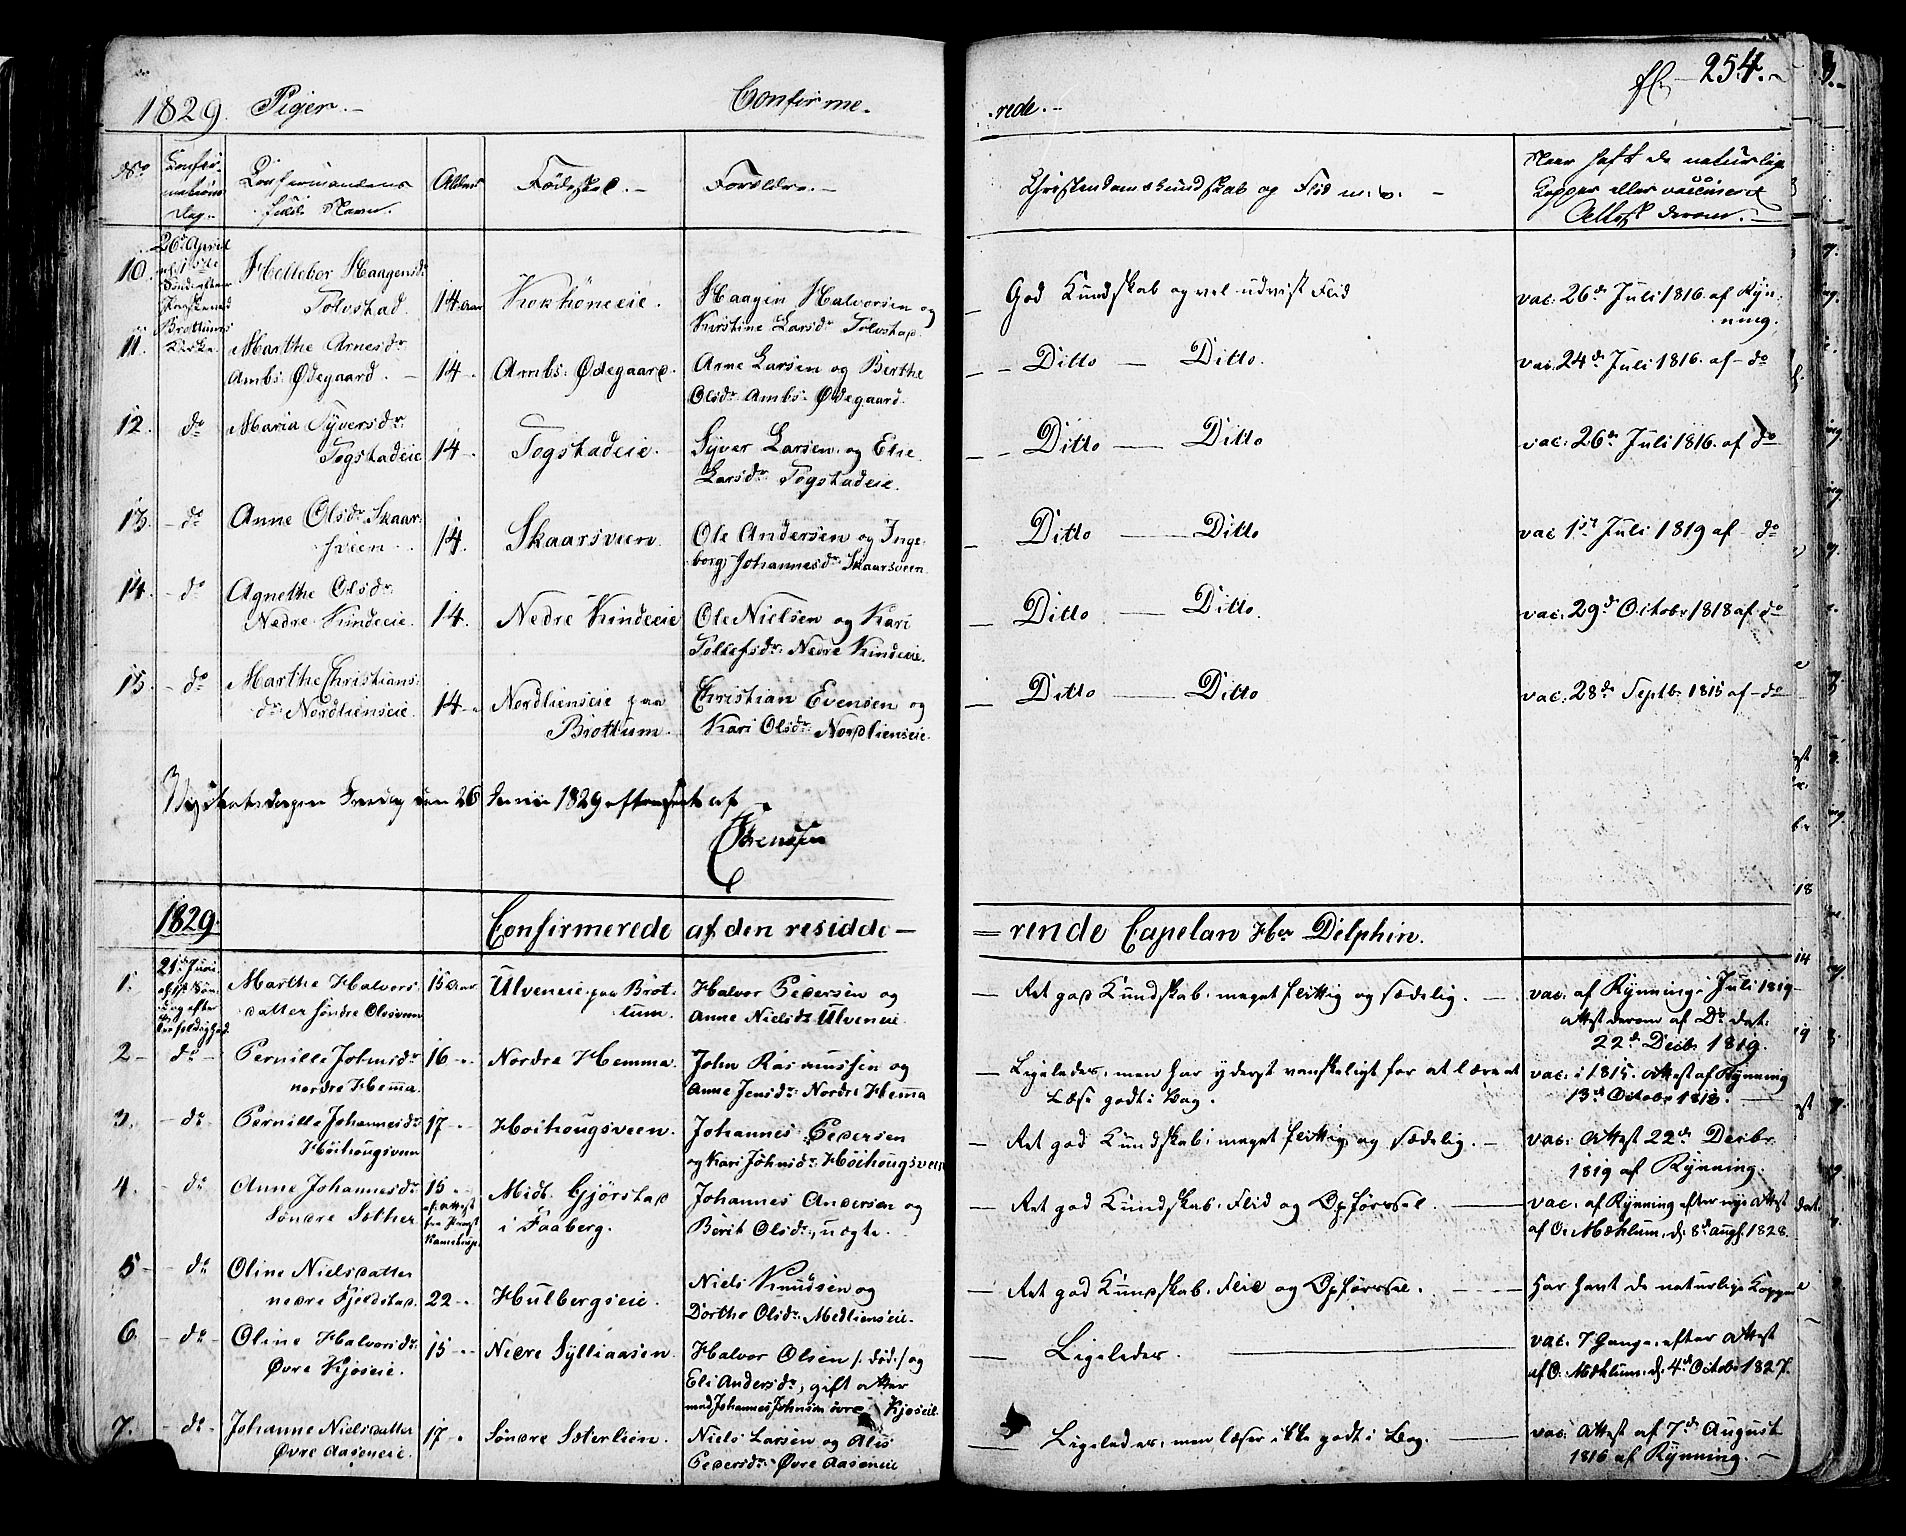 1829. Piger.- Confirme-
-rede.- fl: 254.-
No Confirmations Dag. Confirmandens fulde Navn. Alder Fødested.- Forældre.- Christendomskundskab og Flid m. v. - Naar haft de naturlige
Kopper eller vaccineret
Attest derom.-
10. 26de April
Hellebor Haagensdr
Tolvstad. 14 Aar Kokhöneeie. Haagen Halvorsen og
Kirstine Larsdr Tolvstad. God Kundskab og vel udvist Flid vac. 26de Juli 1816. af Ryn-
ning.
Brottums
Kirke.
11. Marthe Arnesdr
Ambs: Ødegaard. - 14 - Ambs: Ødegaard. Arne Larsen og Berthe
Olsdr Ambs: Ødegaard. - - Ditto - Ditto. vac. 24de Juli 1816. af - do
12. do Maria Syversdr
Togstadeie 14 - Togstadeie. Syver Larsen og Elie
Larsdr Togstadeie. - - Ditto - Ditto vac: 26de Juli 1816. af do
13. - do Anne Olsdr Skaar-
sveen - 14. Skaarsveen. Ole Andersen og Inge-
borg Johannesdr Skaarsveen - Ditto - Ditto vac 1ste Juli 1819 af - do
14. - do Agnethe Olsdr
Nedre Kindeeie. 14. Nedre Kindeeie Ole Nielsen og Kari
Tollefsdr Nedre Kindeeie. - Ditto - Ditto. vac: 29de Octobr 1818 af do
15. - do Marthe Christians-
dr Nordlienseie. 14 - Nordlienseie paa
Brottum. Christian Evensen og
Kari Olsdr Nordlienseie. - Ditto - Ditto vac: 28de Septbr 1815 af - do
Visitatsdagen Fredag den 26 Junii 1829 efterseet af
1829. Confirmerede af den residde-
=rende Capelan Hr Delphin.
1. 21de Juni
Marthe Halvors
datter söndre Olesveen 15 Aar Ulveneie paa Brot-
tum. Halvor Pedersen og
Anne Nielsdr Ulveneie. - Ret god Kundskab, meget flittig og sædelig. - vac. af Rynning i Juli 1819
Attest derom af Do dat:
22de Decbr 1819.
2 - do - Pernille Johnsdr
nordre Hemma. 16 - Nordre Hemma. John Rasmussen og
Anne Jensdr Nordre Hemma - Ligeledes, men har yderst vanskeligt for at lære at
Læse godt i Bog. vac: i 1815. Attest af Rynning
13de Octobr 1818. -
3. - do Pernille Johannesdr
Höihougsveen 17 - Höihougsveen. Johannes Pedersen
og Kari Johnsdr Höihougsveen - Ret god Kundskab, meget flittig og sædelig. - vac: Attest 22de Decbr
1819 af Rynning.
4. - do Anne Johannesdr
Söndre Sether 15 - Midt. Gjörstad
i Faaberg. Johannes Andersen og
Berit Olsdr, uægte. - Ret god Kundskab, Flid og Opførsel. - vac. af Rynning efter nye Attest
af O. Mæhlum, dj 8de Augs. 1828.
5 - - do Oline Nielsdatter
nedre Kjeldstad. 22 - Hulbergseie. Niels Knudsen og
Dorthe Olsdr Medlienseie. - Ret god Kundskab, Flid og Opførsel. - Har havt de naturlige Kopper
6. - do - Oline Halvorsdr
Øvre Kjoseie. 15 - Nedre Sylliaasen. Halvor Olsen /: död :/ og
Eli Andersdr, gift atter
med Johannes Johnsen övre Kjoseie. - Ligeledes. - vac. 7 Gange efter Attest
af O. Mæhlum, dj 4de Octobr 1827.
7. - do - Johanne Nielsdatter
Øvre Aaseneie. 17 - Söndre Sæterlien. Niels Larsen og Alis
Pedersdr Øvre Aaseneie - Ligeledes, men læser ikke godt i Bog. - vac. Attest af 7de August
1816 af Rynning. -